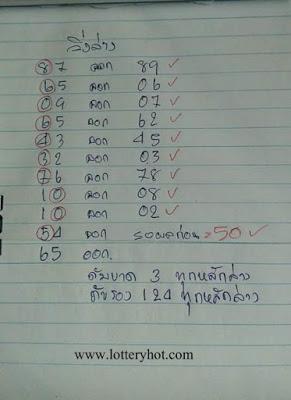 วิ่งล่าง
87 ออก 89 ✓
65 ออก 06 ✓
09 ออก 07 ✓
65 ออก 62 ✓
43 ออก 45 ✓
32 ออก 03 ✓
76 ออก 78 ✓
10 ออก 08 ✓
10 ออก 02 ✓
54 ออก รอผลก่อน = 50 ✓
65 ออก.
3 ทุกหลักล่าง
124 ทุกหลักล่าง
www.lotteryhot.com